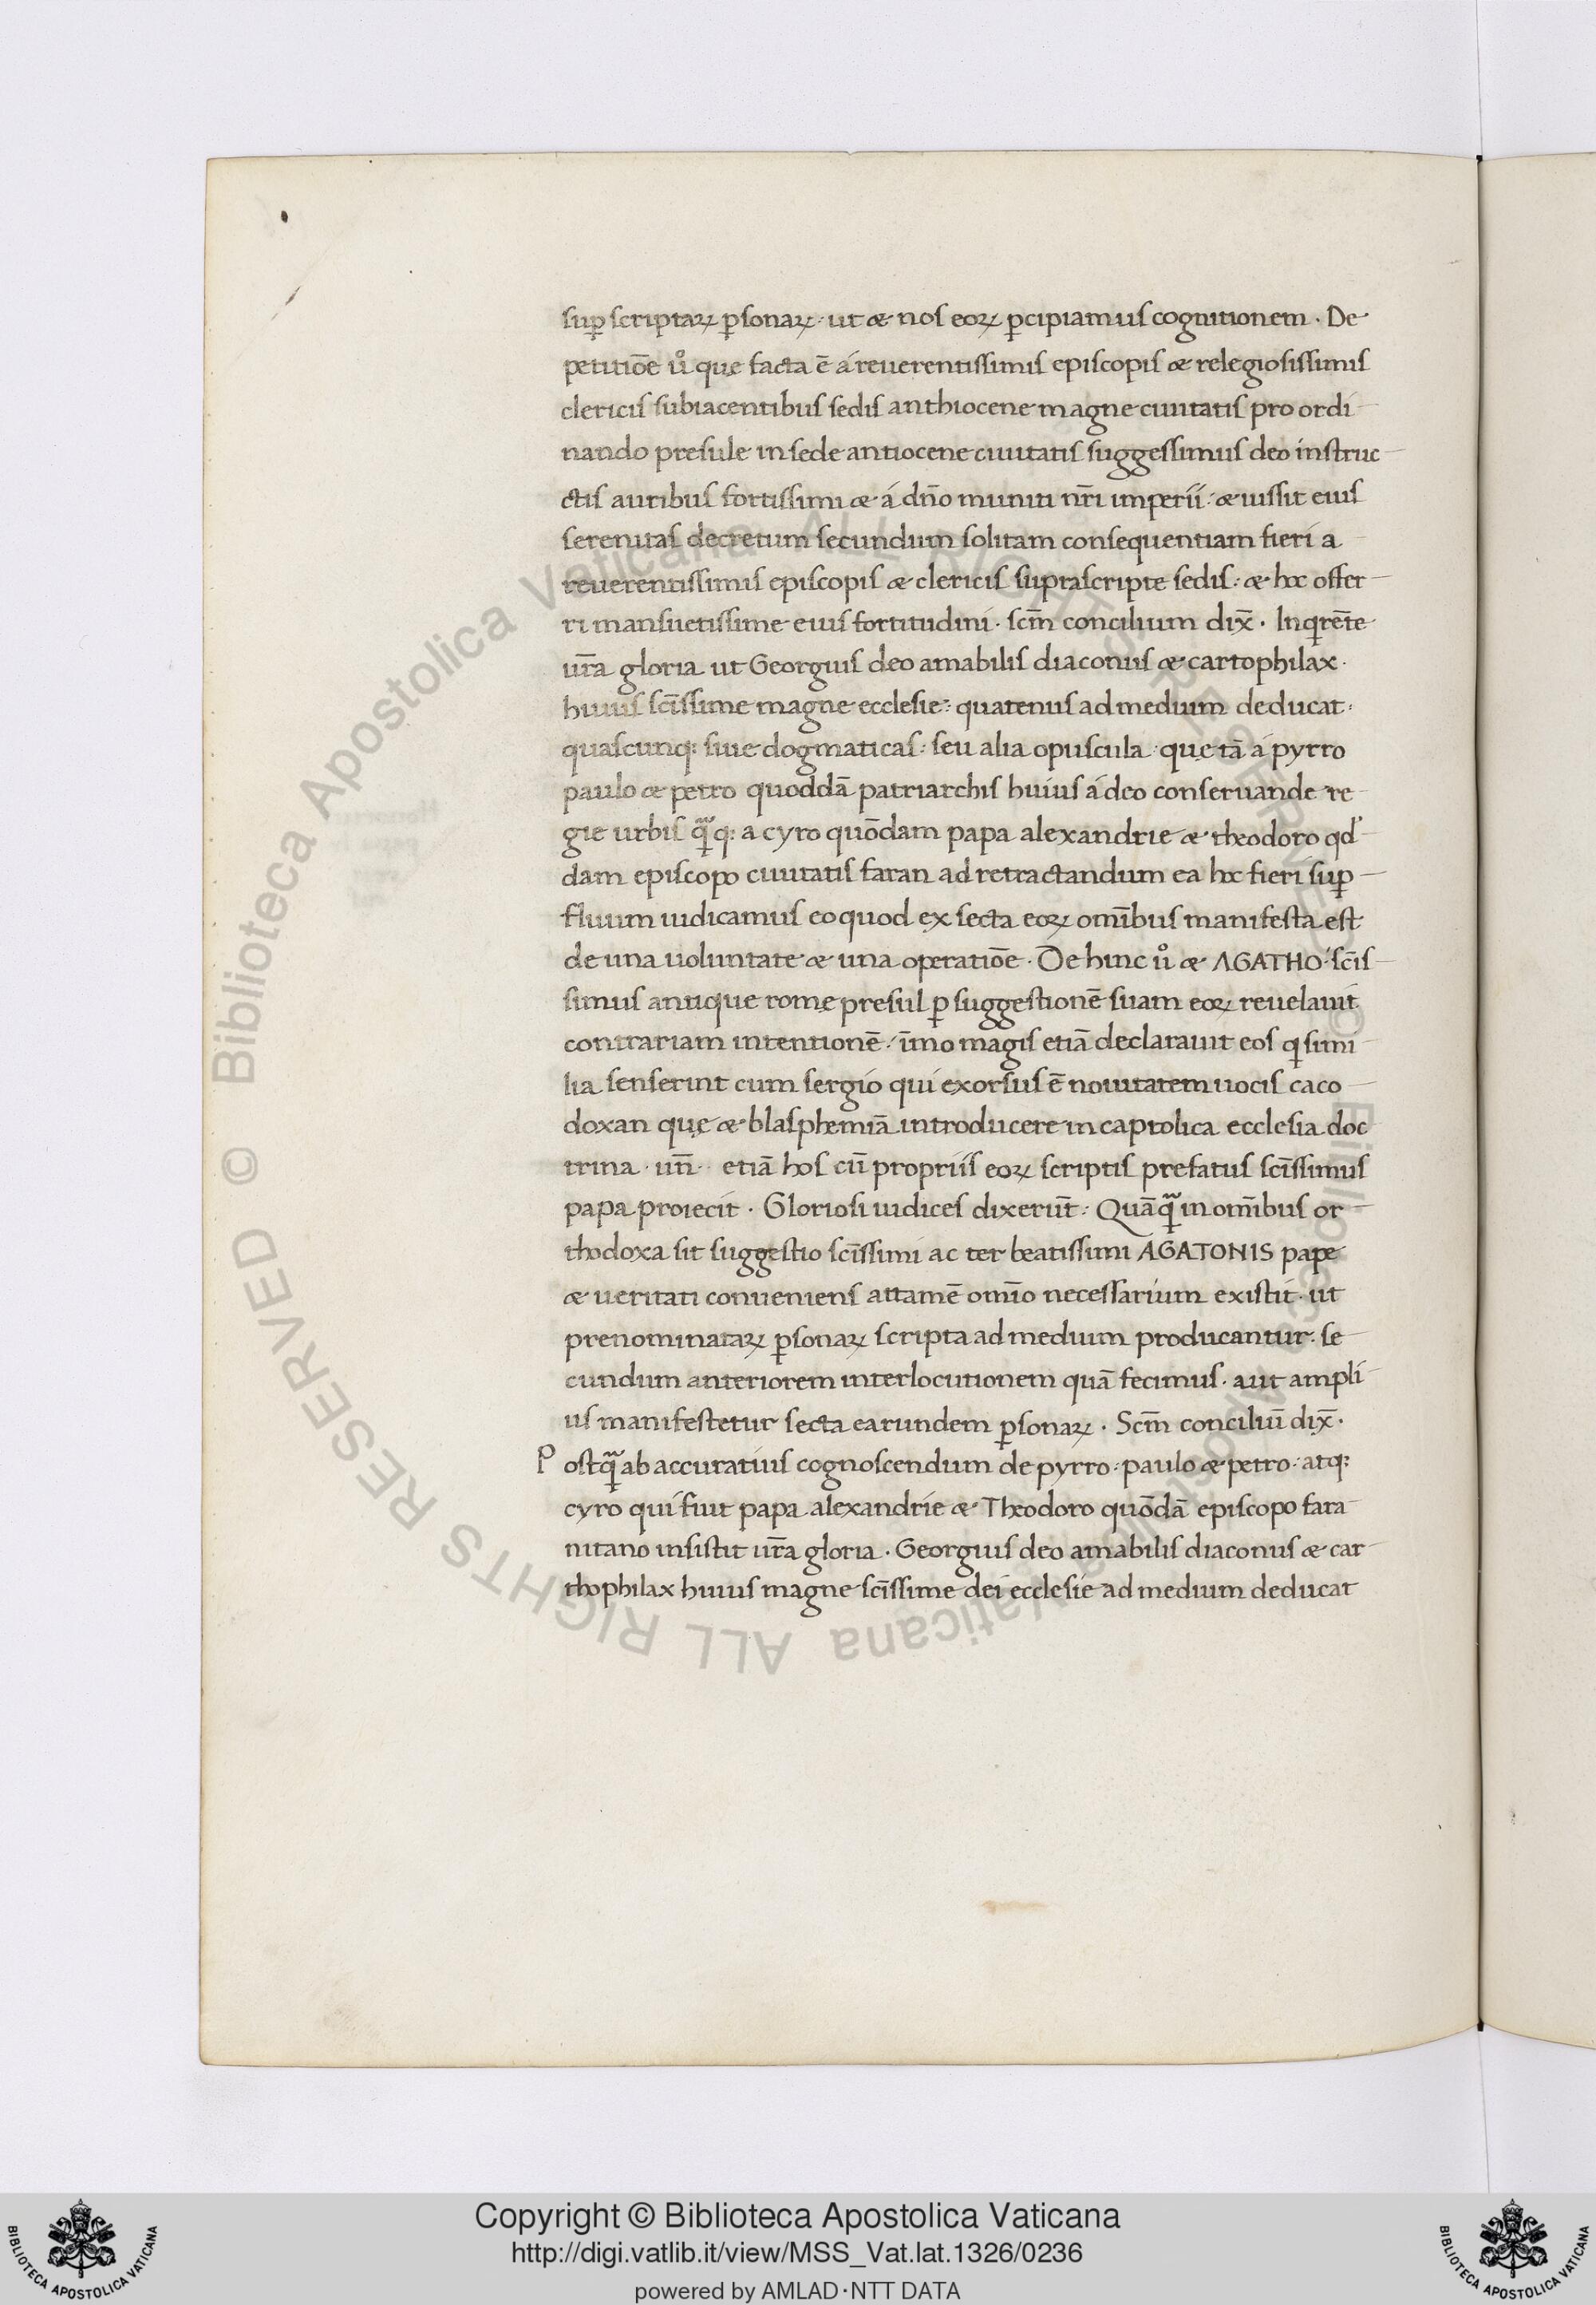 sup̱ scriptaꝝ ꝑsonaꝝ · ut æ nos eoꝝ ꝑcipiamus cognitionem · De
petitiōe u̾o que facta ē á reuerentissimis episcopis æ relegiosissimis
clericis subiacentibus sedis anthiocene magne ciuitatis pro ordi
nando presule in sede antiocene ciuitatis suggessimus deo instruc
ctis auribus fortissimi æ á dn̄o muniti nr̄i imperíí · æ iussit eius
serenitas decretum secundum solitam consequentiam fieri a
reuerentissimis episcopis æ clericis suprascripte sedis : æ hoc offer
ri mansuetissime eius fortitudini · scm̄ concilium dix̄ · Inqrēte
ur̄a gloria ut Georgius deo amabilis diaconus æ cartophilax ·
huius scīssime magne ecclesie : quatenus ad medium deducat ·
quascunq: siue dogmaticas : seu alia opuscula · que tā á pyrro
paulo æ petro quoddā patriarchis huius á deo conseruande re
gie urbis qᷓq: a cyro quōdam papa alexandrie æ theodoro qd̓
dam episcopo ciuitatis faran ad retractandum ea hoc fieri suꝑ
fluum iudicamus eo quod ex secta eoꝝ omībus manifesta est
de una uoluntate æ una operatiōe · De hinc u̾o æ AGATHO · scīs
simus antique rome presul ꝑ suggestionē suam eoꝝ reuelauit
contrariam intentionē · īmo magis etiā declarauit eos q simi
lia senserint cum sergio qui exorsus ē nouitatem uocis caco
doxan que æ blasphemiā introducere in captolica ecclesia doc
trina · un̄ · etiā hos cū propriis eoꝝ scriptis prefatus scīssimus
papa proiecit · Gloriosi iudices dixerūt : Quāqᷓ in omībus or
thodoxa sit suggestio scīssimi ac ter beatissimi AGATONIS pape
æ ueritati conueniens attamē omīo necessarium existit · ut
prenominataꝝ ꝑsonaꝝ scripta ad medium producantur · se
cundum anteriorem interlocutionem quā fecimus · aut ampli
us manifestetur secta earundem ꝑsonaꝝ · Scm̄ conciliū dix̄ ·
P ostqᷓ ab accuratius cognoscendum de pyrro · paulo æ petro · atq:
cyro qui fuit papa alexandrie æ Theodoro quōdā episcopo fara
nitano insistit ur̄a gloria · Georgius deo amabilis diaconus æ car
thophilax huius magne scīssime dei ecclesie ad medium deducat
© Biblioteca Apostolica Vaticana ALL RIGHTS RESERVED © Biblioteca Apostolica Vaticana ALL RIGHTS RESERVED
Copyright © Biblioteca Apostolica Vaticana
http://digi.vatlib.it/view/MSS_Vat.lat.1326/0236
powered by AMLAD·NTT DATA
BIBLIOTECA APOSTOLICA VATICANA
BIBLIOTECA APOSTOLICA VATICANA